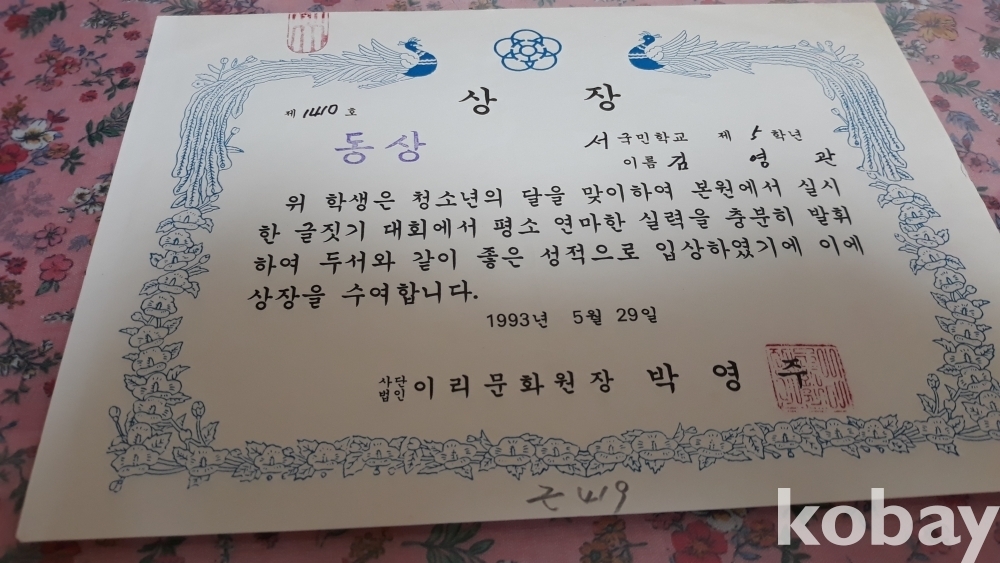 제 1410 호
상 장
동상
서 국민학교 제 5 학년
이름 김 영 관
위 학생은 청소년의 달을 맞이하여 본원에서 실시
한 글짓기 대회에서 평소 연마한 실력을 충분히 발휘
하여 두서와 같이 좋은 성적으로 입상하였기에 이에
상장을 수여합니다.
1993년 5월 29일
사단법인 이리문화원장 박 영 주
근 419
kobay